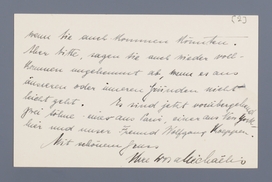 (2)
wenn Sie auch kommen könnten.
Aber bitte, sagen Sie auch wieder voll-
kommen ungehemmt ab, wenn es aus
äusseren oder inneren Gründen nicht
leicht geht. Es sind jetzt vorübergehend
hier und unser Freund Wolfgang Koeppen.
Mit schönem Gruss
Ihre